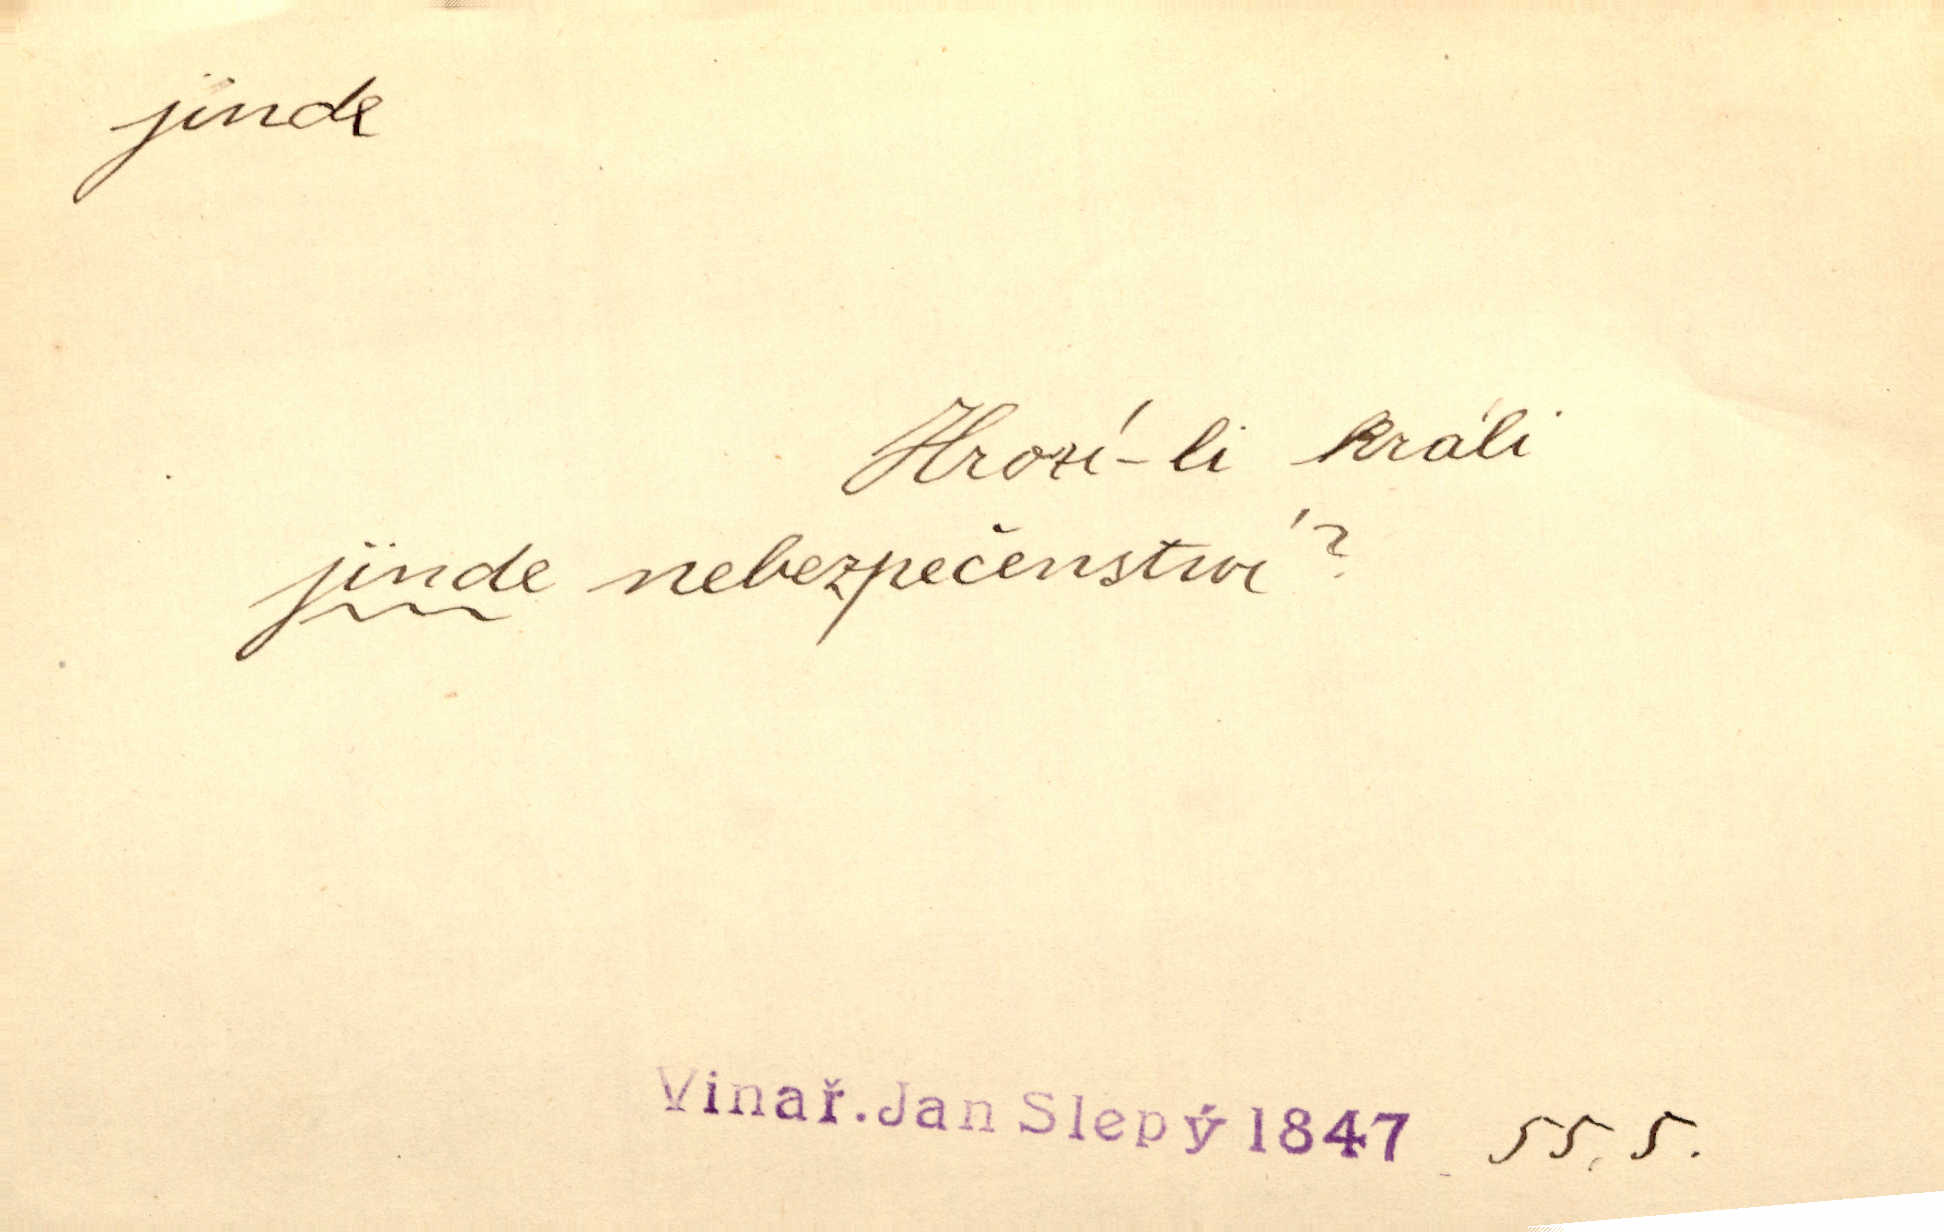 jinde
Hrozí-li králi
jinde nebezpečenství?
Vinař. Jan Slepý 1847 55, 5.